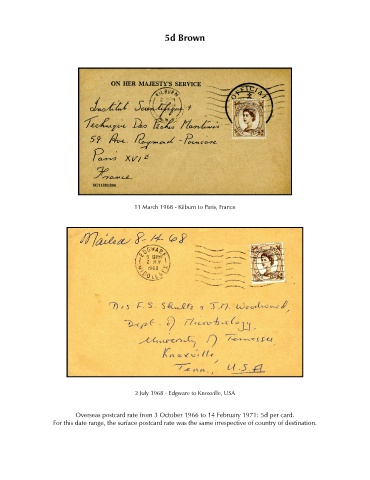 5d Brown
ON HER MAJESTY'S SERVICE
OFFICIAL
KILBURN
Institut Scientifique &
Technique Des Pêches Maritimes
59 Ave. Raymond-Poincare
Paris XVIe
France
11 March 1968 - Kilburn to Paris, France
Mailed 8-14-68
EDGWARE
1968
MIDDLESEX
Drs F.S. Shultz & J.M. Woodward,
Dept. of Microbiology,
University of Tennessee
Knoxville
Tenn., U.S.A
2 July 1968 - Edgware to Knoxville, USA
Overseas postcard rate from 3 October 1966 to 14 February 1971: 5d per card.
For this date range, the surface postcard rate was the same irrespective of country of destination.